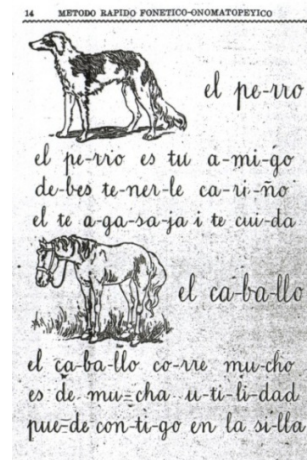 14 METODO RAPIDO FONETICO-ONOMATOPEYICO
el pe-rro
el pe-rro es tu a-mi-go
de-bes te-ner-le ca-ri-ño
el te a-ga-sa-ja i te cui-da
el ca-ba-llo
el ca-ba-llo co-rre mu-cho
es de mu-cha u-ti-li-dad
pue-de con-ti-go en la si-lla